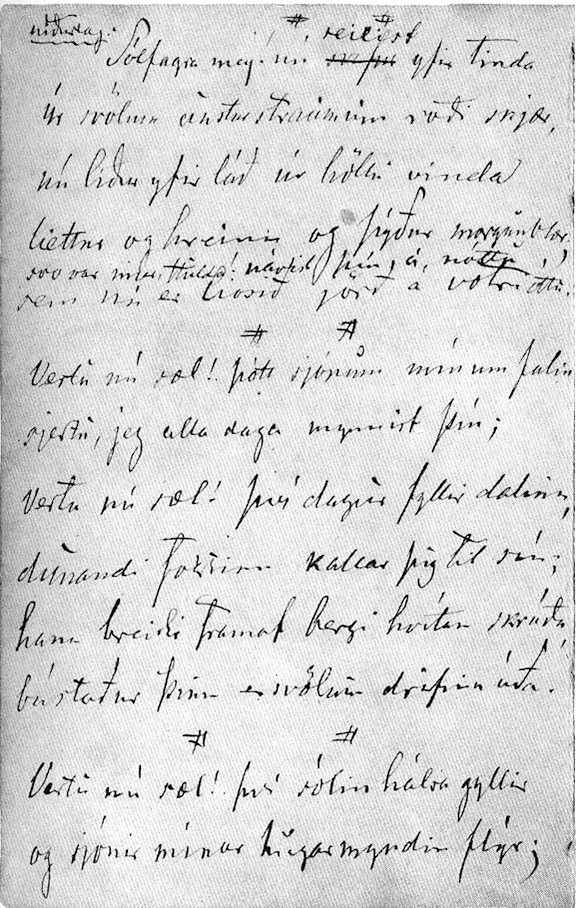 niðurlag:
# seilist #
Sólfagra mey! nú yfir tinda
úr svölum austurstraumum roði skjær,
nú líður yfir láð úr höllu vinda
liettur og hreinn og þýður morgunblær,
svo var návist þín á nóttu,
sem nú er liosið jörð á votri óttu.
# #
Vertu nú sæl! þótt sjónum mínum falin
sjertu, jeg alla daga mynnist þín;
vertu nú sæl! því dagur fyllir dalinn,
dunandi fossinn kallar þig til sín;
hann breiðir framaf bergi hvítan skrúða
bústaður þinn er svölum drifinn úða.
# #
Vertu nú sæl! því sólin hálsa gyllir
og sjónir mínar hugarmyndin flýr;